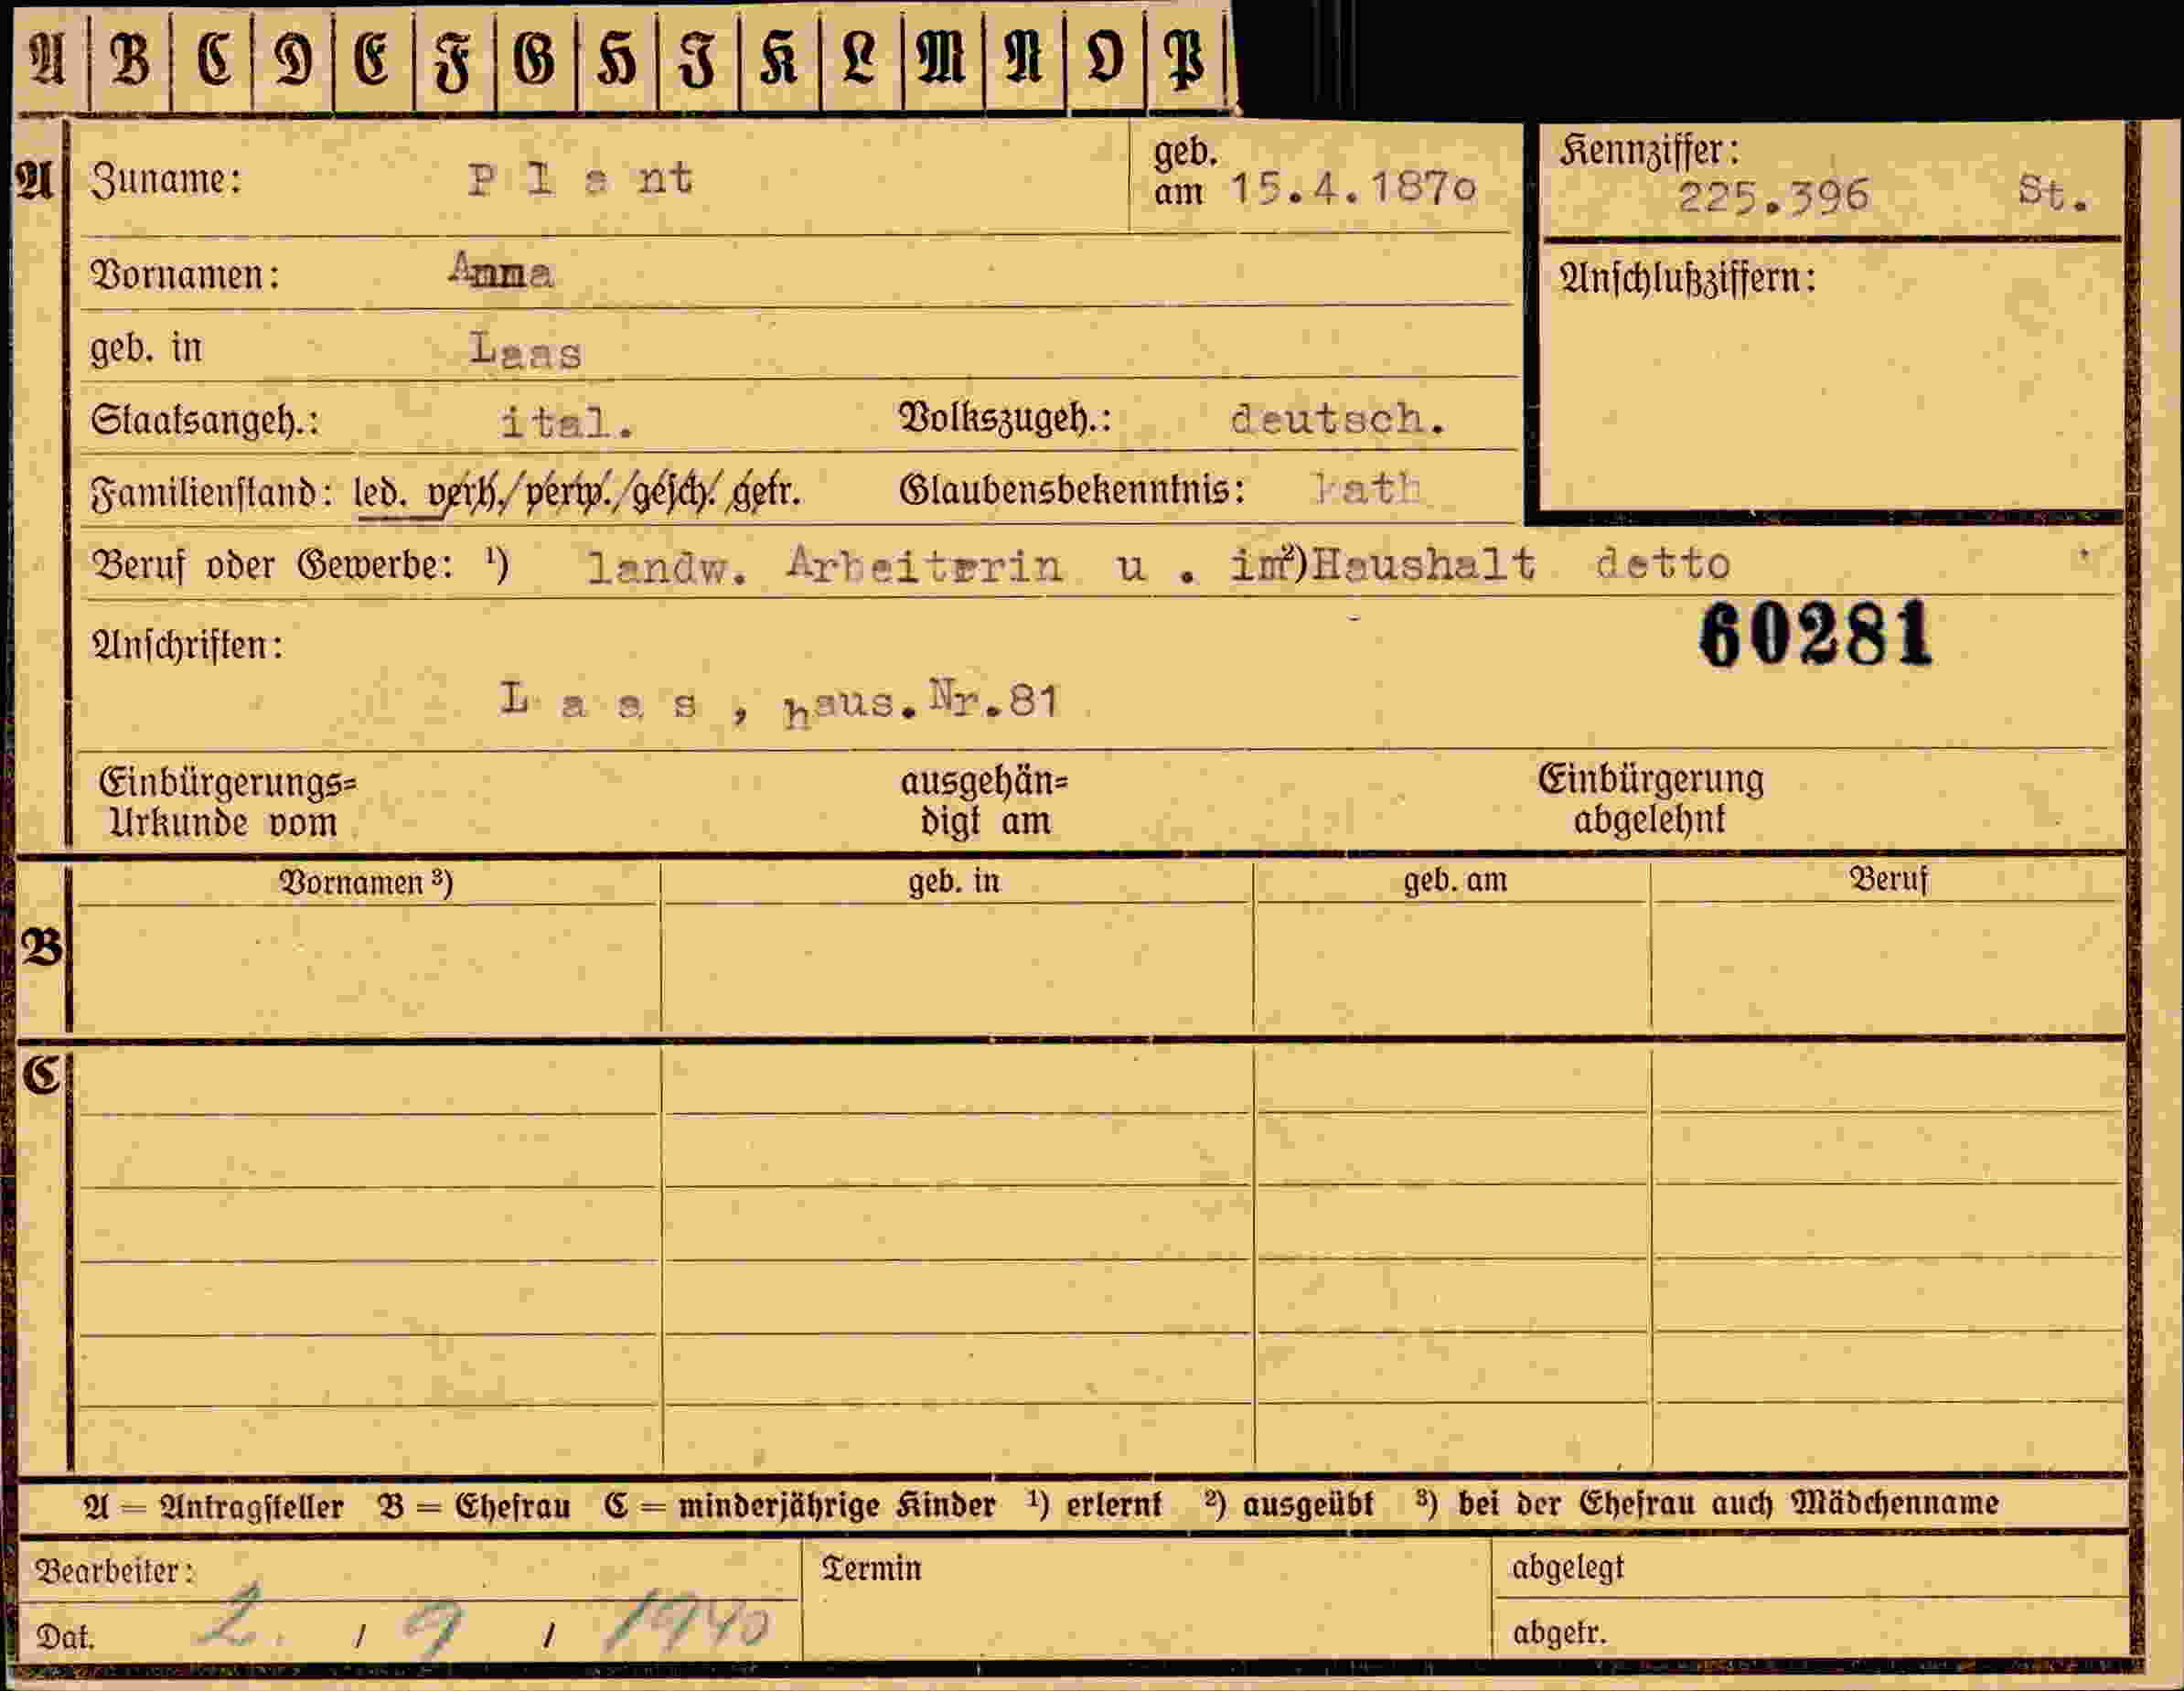 A B C D E F G H I K L M N O P
A Zuname: P l a nt geb. am 15.4.1870 Kennziffer: 225.396 St.
Vornamen: Anna Anschlußziffern:
geb. in Laas
Staatsangeh.: ital. Volkszugeh.: deutsch.
Familienstand: led. verh./verw./gesch./getr. Glaubensbekenntnis: kath
Beruf oder Gewerbe: ¹) landw. Arbeiterin u . im ²) Haushalt detto
60281
Anschriften:
L a a s , haus.Nr.81
Einbürgerungs= ausgehän= Einbürgerung
Urkunde vom digt am abgelehnt
Vornamen ³) geb. in geb. am Beruf
B
C
A = Antragsteller B = Ehefrau C = minderjährige Kinder ¹) erlernt ²) ausgeübt ³) bei der Ehefrau auch Mädchenname
Bearbeiter: Termin abgelegt
Dat. 2. / 9 / 1940 abgetr.